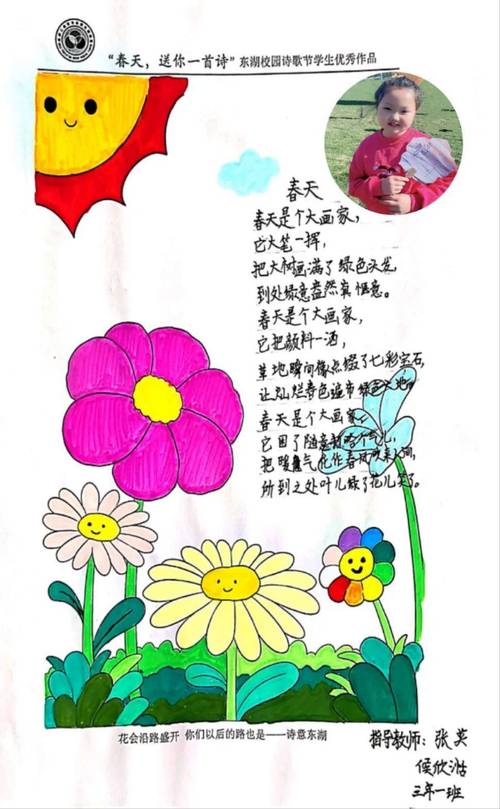 “春天，送你一首诗”东湖校园诗歌节学生优秀作品
春天
春天是个大画家，
它大笔一挥，
把大树画满了绿色头发，
到处绿意盎然真惬意。
春天是个大画家，
它把颜料一洒，
草地瞬间像点缀了七彩宝石，
让灿烂春色遍布绿色大地。
春天是个大画家，
它困了随意打哈个气儿，
把暖气化作春风吹来人间，
所到之处叶儿绿了花儿笑了。
花会沿路盛开 你们以后的路也是——诗意东湖
指导教师：张英
侯欣
三年一班